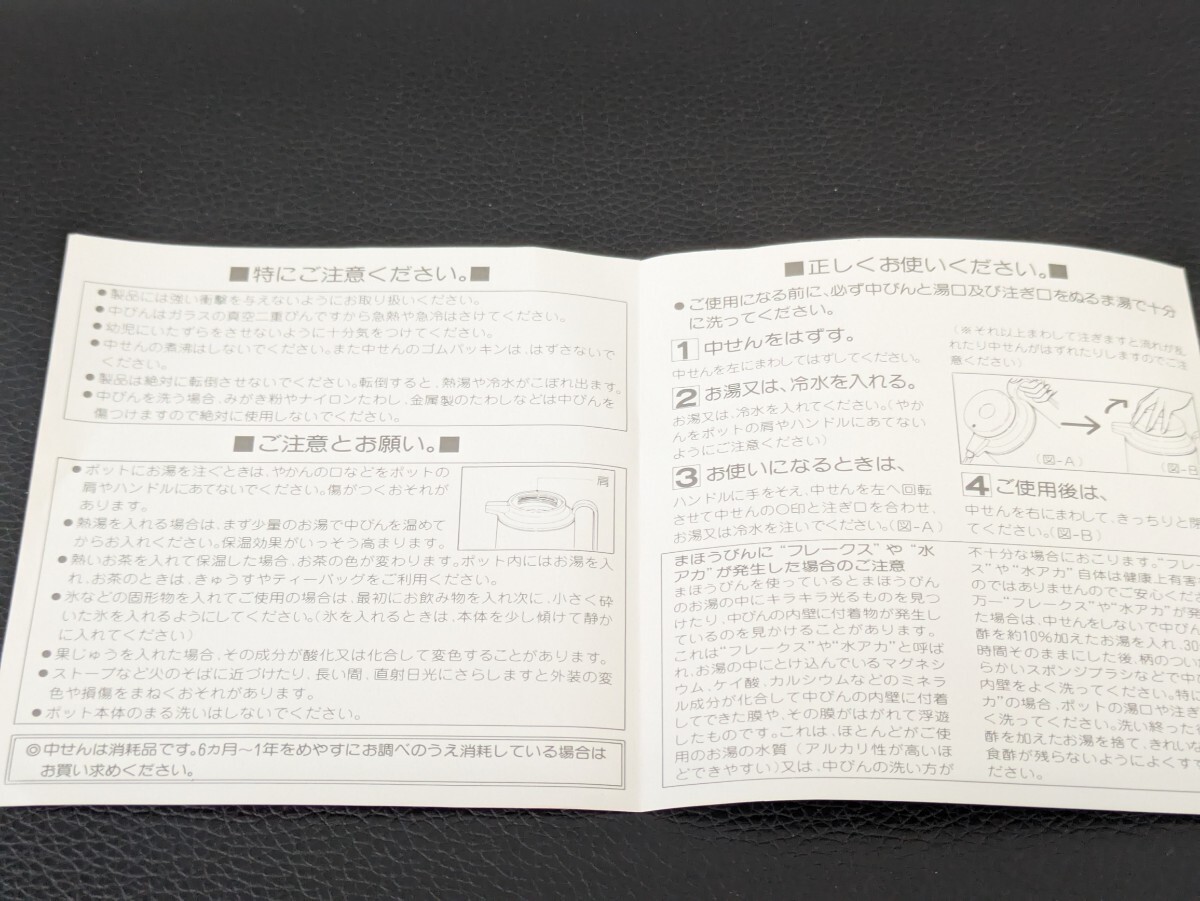 ■特にご注意ください。■
●製品には強い衝撃を与えないようにお取り扱いください。
●中びんはガラスの真空二重びんですから急熱や急冷はさけてください。
●幼児にいたずらをさせないように十分気をつけてください。
●中せんの煮沸はしないでください。また中せんのゴムパッキンは、はずさないで
ください。
●製品は絶対に転倒させないでください。転倒すると、熱湯や冷水がこぼれ出ます。
●中びんを洗う場合、みがき粉やナイロンたわし、金属製のたわしなどは中びんを
傷つけますので絶対に使用しないでください。
■ご注意とお願い。■
●ポットにお湯を注ぐときは、やかんの口などをポットの
肩やハンドルにあてないでください。傷がつくおそれが
あります。
肩
●熱湯を入れる場合は、まず少量のお湯で中びんを温めて
からお入れください。保温効果がいっそう高まります。
●熱いお茶を入れて保温した場合、お茶の色が変わります。ポット内にはお湯を入
れ、お茶のときは、きゅうすやティーバッグをご利用ください。
●氷などの固形物を入れてご使用の場合は、最初にお飲み物を入れ次に、小さく砕
いた氷を入れるようにしてください。(氷を入れるときは、本体を少し傾けて静か
に入れてください)
●果じゅうを入れた場合、その成分が酸化又は化合して変色することがあります。
●ストーブなど火のそばに近づけたり、長い間、直射日光にさらしますと外装の変
色や損傷をまねくおそれがあります。
●ポット本体のまる洗いはしないでください。
◎中せんは消耗品です。6ヵ月〜1年をめやすにお調べのうえ消耗している場合は
お買い求めください。
■正しくお使いください。■
●ご使用になる前に、必ず中びんと湯口及び注ぎ口をぬるま湯で十分
に洗ってください。
1 中せんをはずす。
中せんを左にまわしてはずしてください。
2 お湯又は、冷水を入れる。
お湯又は、冷水を入れてください。(やか
んをポットの肩やハンドルにあてない
ようにご注意ください)
3 お使いになるときは、
ハンドルに手をそえ、中せんを左へ回転
させて中せんの〇印と注ぎ口を合わせ、
お湯又は冷水を注いでください。(図-A)
(※それ以上まわして注ぎますと流れが乱
れたり中せんがはずれたりしますのでご注
意ください)
(図-A)
(図-B
4 ご使用後は、
中せんを右にまわして、きっちりと
てください。(図-B)
まほうびんに"フレークス"や"水
アカ"が発生した場合のご注意
まほうびんを使っているとまほうびん
のお湯の中にキラキラ光るものを見つ
けたり、中びんの内壁に付着物が発生し
ているのを見かけることがあります。
これは"フレークス"や"水アカ"と呼ば
れ、お湯の中にとけ込んでいるマグネシ
ウム、ケイ酸、カルシウムなどのミネラ
ル成分が化合して中びんの内壁に付着
してできた膜や、その膜がはがれて浮遊
したものです。これは、ほとんどがご使
用のお湯の水質(アルカリ性が高いほ
どできやすい)又は、中びんの洗い方が
不十分な場合におこります。"フレー
ス"や"水アカ"自体は健康上有害
のではありませんのでご安心くださ
万一"フレークス"や"水アカ"が発
た場合は、中せんをしないで中びん
酢を約10%加えたお湯を入れ、30
時間そのままにした後、柄のつい
らかいスポンジブラシなどで中び
内壁をよく洗ってください。特に
カ"の場合、ポットの湯口や注ぎ
く洗ってください。洗い終った後
酢を加えたお湯を捨て、きれいな
食酢が残らないようによくすす
ださい。